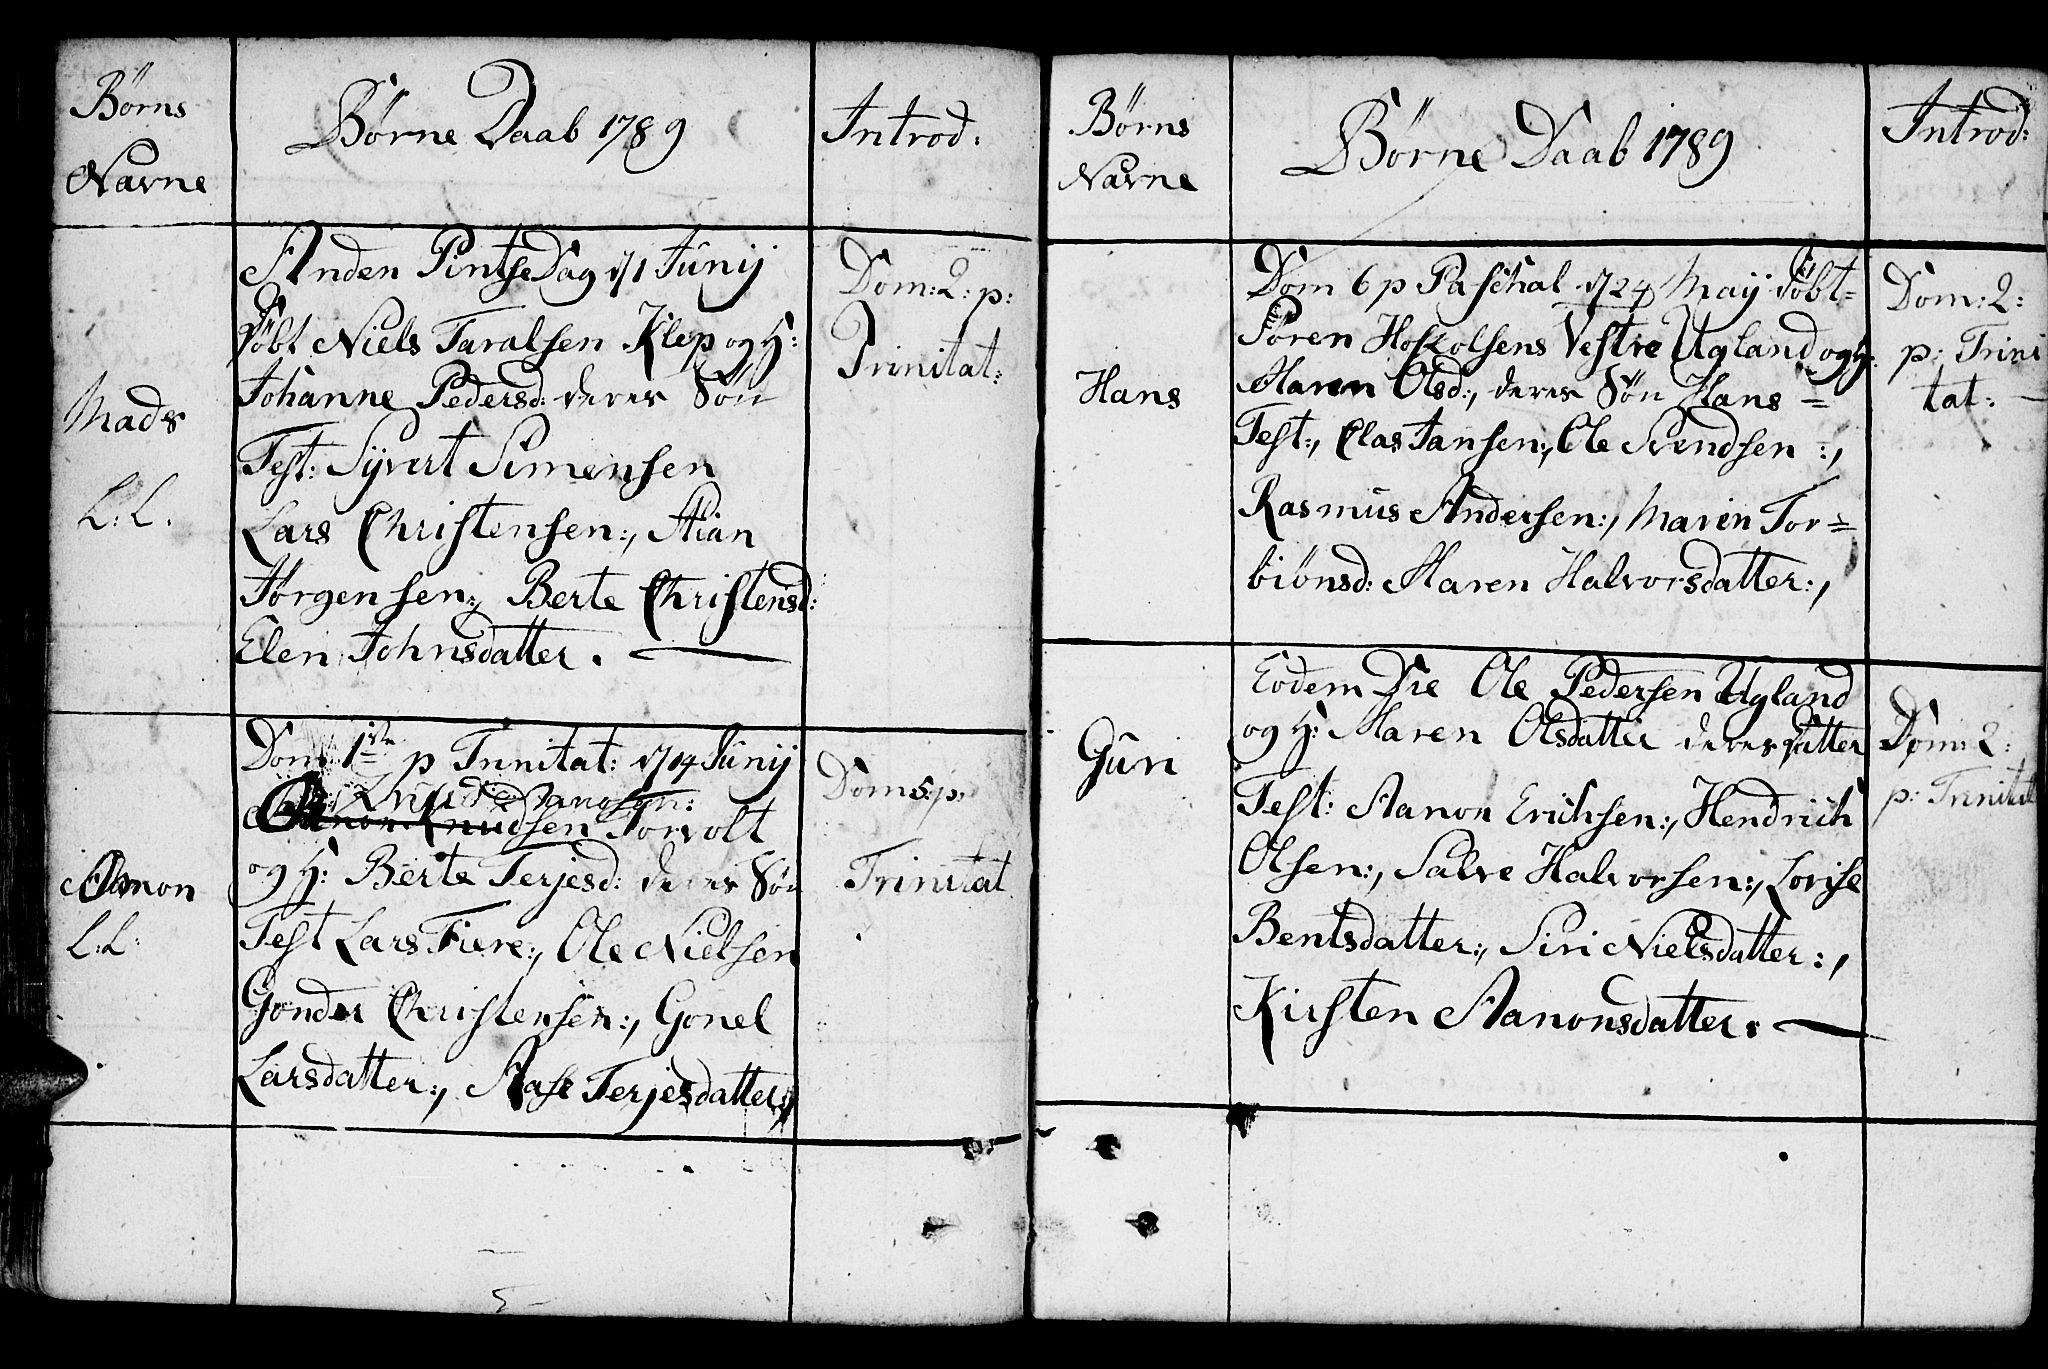 Børns
Navne
Børne Daab 1789
Introd:
Mads
L: L.
Anden PintseDag d/1 Junij
døbt Niels Taralsen Klep og H:
Johanne Pedersd: deres Søn
Test: Syvert Simensen
Lars Christensen:, Stian
Jørgensen:, Berte Christensd:
Elen Johnsdatter.
Dom: 2: p:
Trinitat:
Aanon
L: L:
Dom 1ste p Trinitat: d/14 Junij
Knud Aanonsen:
Aanon Knudsen Torvolt
og H: Berte Terjesd: deres Søn
Test Lars Fiere:, Ole Nielsen
Gonder Christensen:, Gonel
Larsdatter:, Aase Terjesdatter:
Dom 5: p:
Trinitat
Børns
Navne
Børne Daab 1789
Introd:
Hans
Dom 6 p Paschal d/24 May døbt
Søren Hoskolsens Vestre Ugland og H:
Maren Olsd:, deres Søn Hans =
Test:, Clas Jansen:, Ole Svendsen :,
Rasmus Andersen:, Maren Tor=
biønsd: Maren Halvorsdatter:,
Dom: 2:
p: Trini
tat:
Guri
Eodem Die Ole Pedersen Ugland
og H: Maren Olsdatter deres datter
Test: Aanon Erichsen:, Hendrich
Olsen:, Salve Halvorsen:, Lovise
Bentsdatter:, Siri Nielsdatter:,
Kirsten Aanonsdatter:
Dom: 2:
p: Trinitat